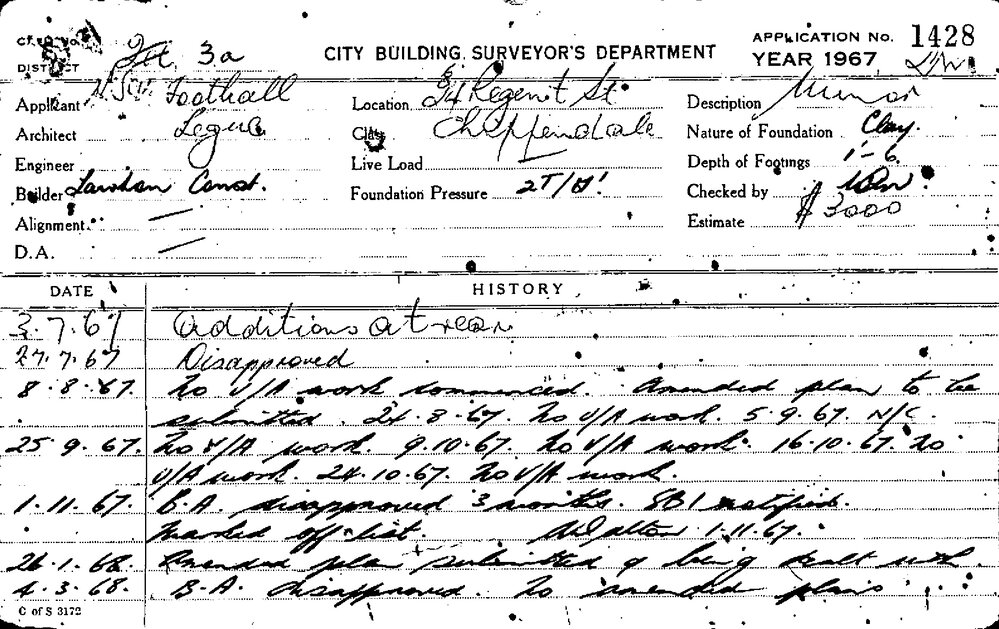 CITY BUILDING SURVEYOR'S DEPARTMENT
APPLICATION No. 1428
YEAR 1967
DISTRICT 3a
Applicant N.S.W. Football
Location 94 Regent St.
Description Minor
Architect League
Class Chippendale
Nature of Foundation Clay.
Engineer
Live Load
Depth of Footings 1'-6
Builder Const.
Foundation Pressure 2T/
Checked by
Alignment —
Estimate $3000
D.A. —
DATE HISTORY
3.7.67 Additions at rear
27.7.67 Disapproved
8.8.67. No U/A work commenced. Amended plan to be
submitted. 24.8.67. No U/A work. 5.9.67. N/C.
25.9.67. No U/A work. 9.10.67. No U/A work. 16.10.67. No
U/A work. 24.10.67. No U/A work.
1.11.67. B.A. disapproved 3 months. SBI notified.
Marked off list. 1.11.67.
26.1.68. Amended plan submitted & being dealt with.
4.3.68. B.A. disapproved. No amended plans
C of S 3172